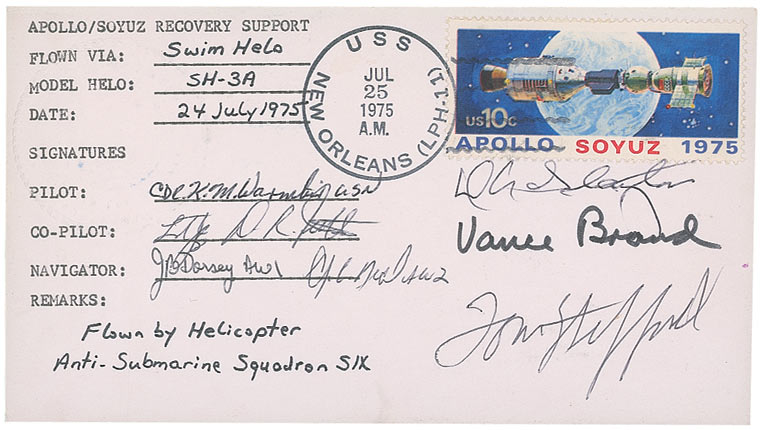 APOLLO/SOYUZ RECOVERY SUPPORT
FLOWN VIA: Swim Helo
MODEL HELO: SH-3A
DATE: 24 July 1975
SIGNATURES
PILOT: CDR. K. M. USN
CO-PILOT: Ltjg D. R.
NAVIGATOR: JB Dorsey AW1 AW2
REMARKS:
Flown by Helicopter
Anti-Submarine Squadron SIX
USS NEW ORLEANS (LPH-11)
JUL
25
1975
A.M.
US 10c
APOLLO SOYUZ 1975
D K Slayton
Vance Brand
Tom Stafford